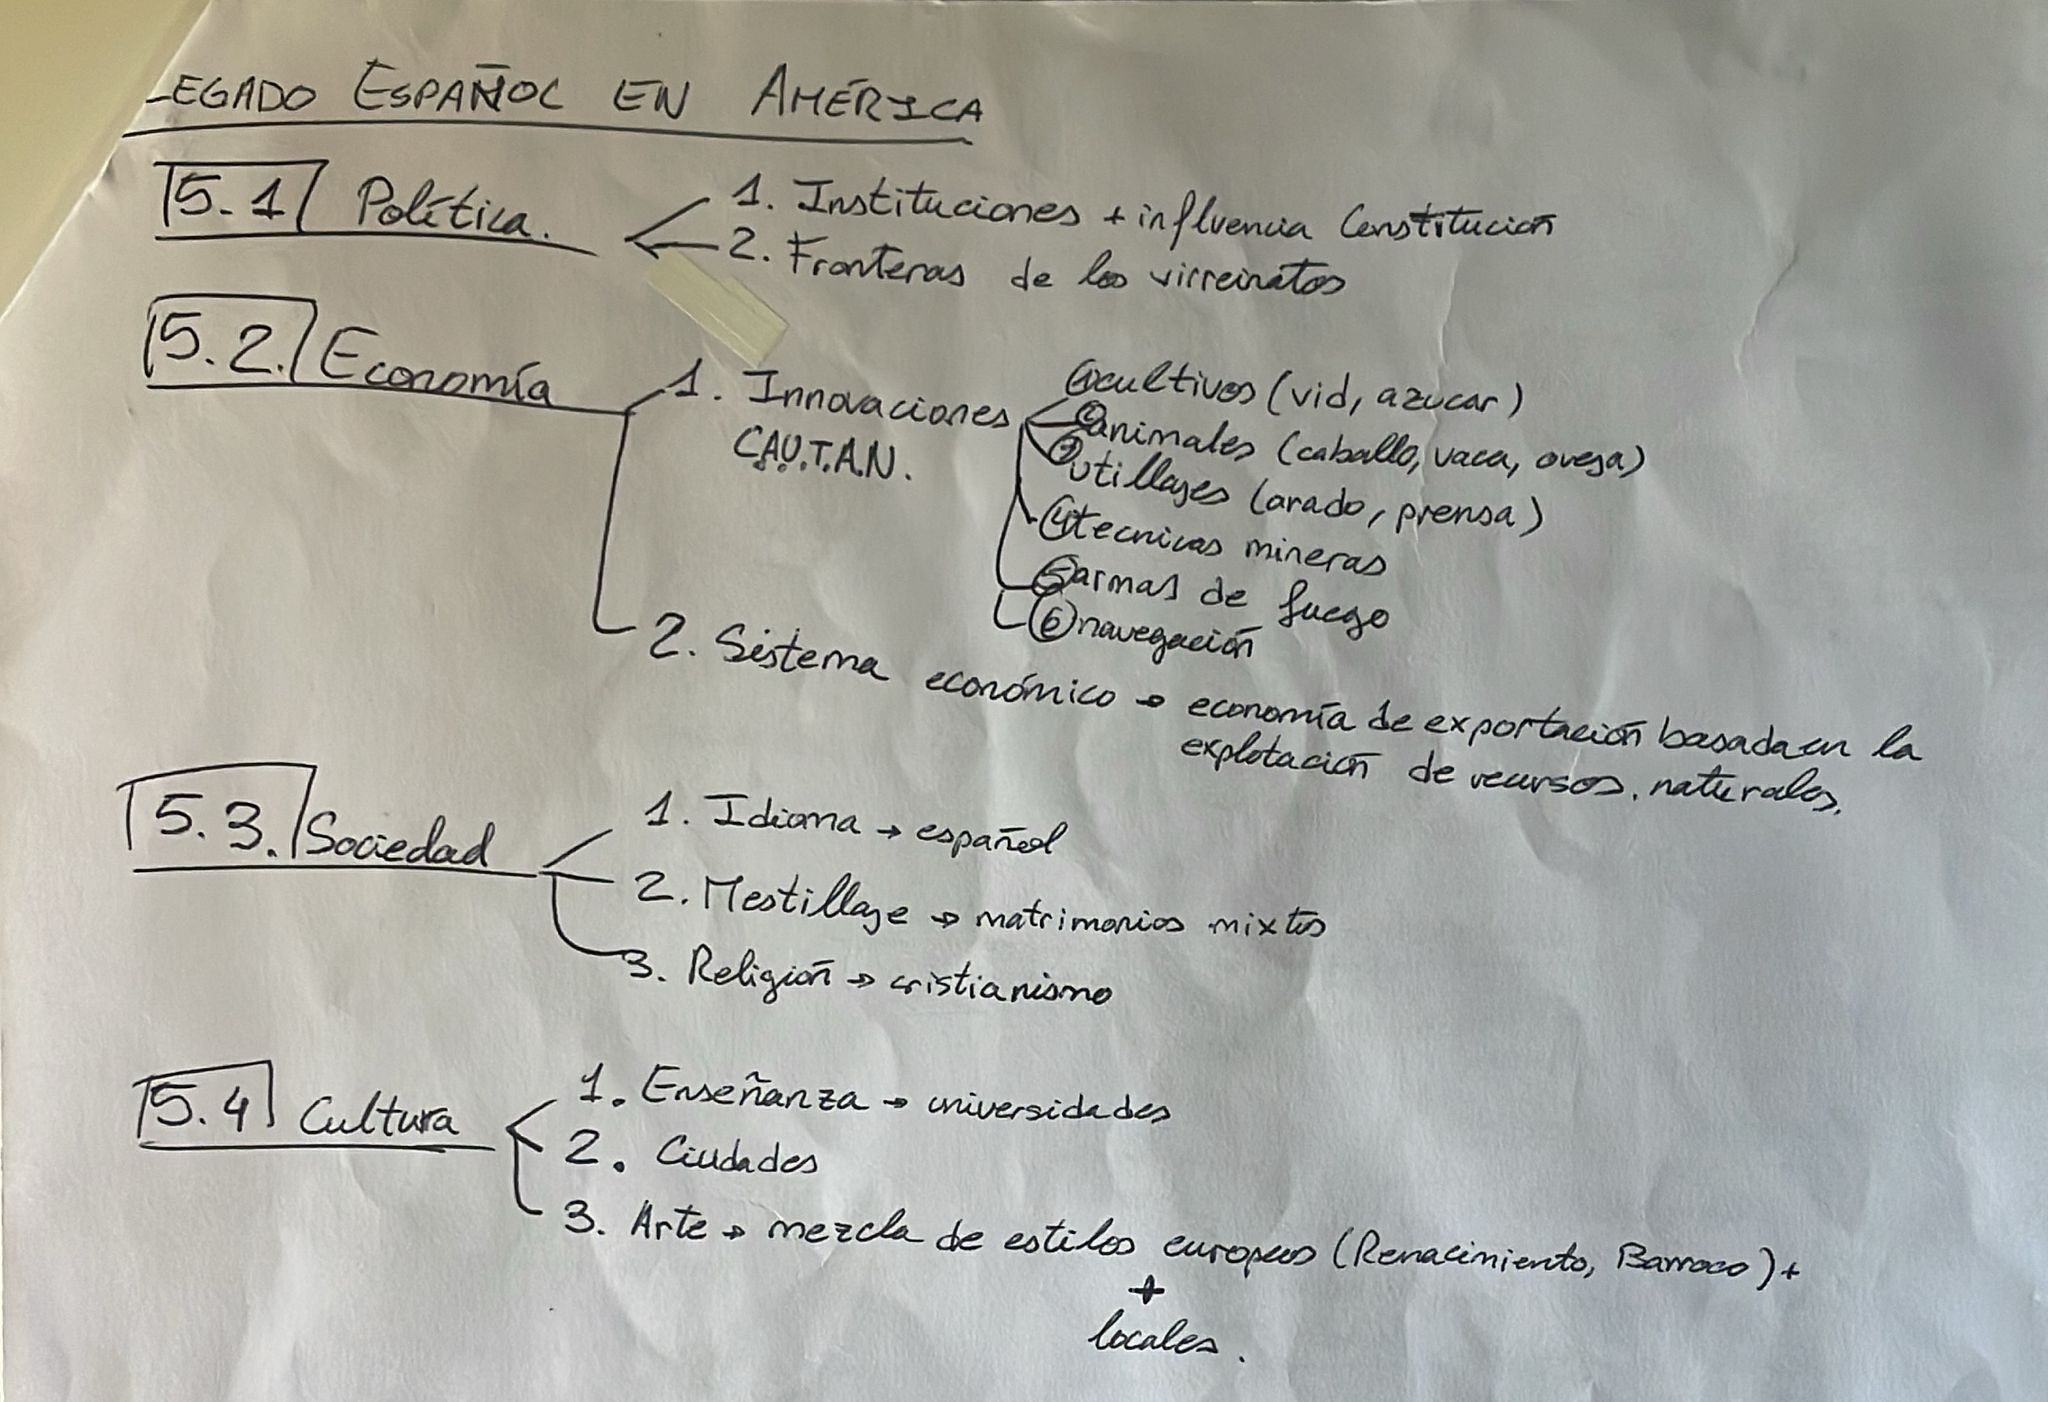 LEGADO ESPAÑOL EN AMÉRICA
5.1 Política.
1. Instituciones + influencia Constitución
2. Fronteras de los virreinatos
5.2. Economía
1. Innovaciones
C.A.U.T.A.N.
① cultivos (vid, azucar)
② animales (caballo, vaca, oveja)
③ utillajes (arado, prensa)
④ tecnicas mineras
⑤ armas de fuego
⑥ navegación
2. Sistema económico → economía de exportación basada en la
explotación de recursos. naturales.
5.3. Sociedad
1. Idioma → español
2. Mestillaje → matrimonios mixtos
3. Religión → cristianismo
5.4 Cultura
1. Enseñanza → universidades
2. Ciudades
3. Arte → mezcla de estilos europeos (Renacimiento, Barroco) +
+
locales.